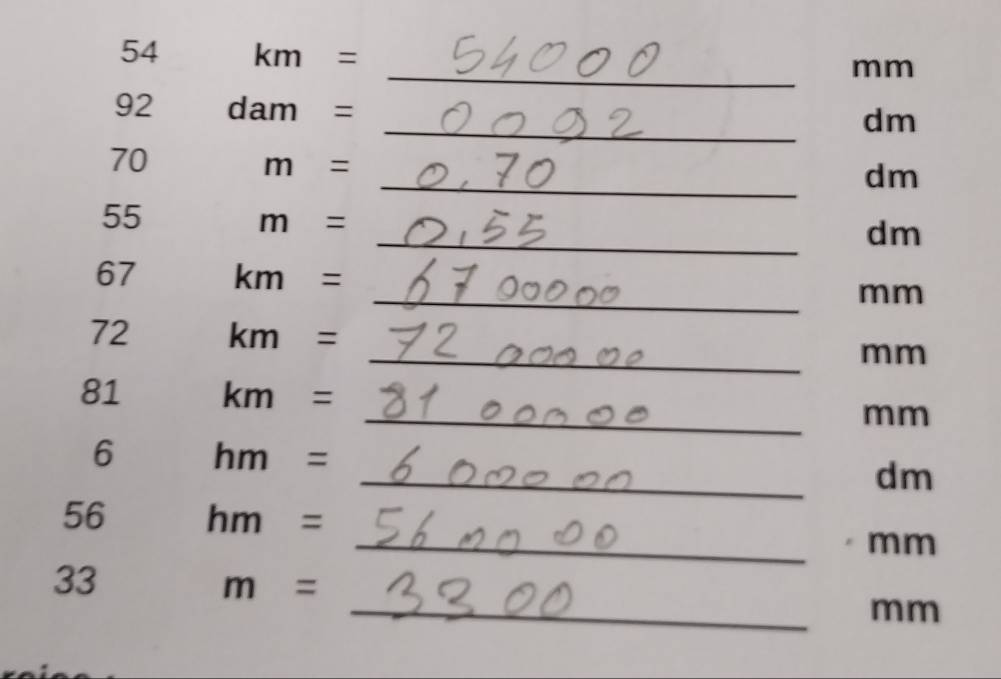 54 km = 54000 mm
92 dam = 0092 dm
70 m = 0,70 dm
55 m = 0,55 dm
67 km = 67 00000 mm
72 km = 72 00000 mm
81 km = 81 00000 mm
6 hm = 6 00000 dm
56 hm = 56 0000 mm
33 m = 33 00 mm